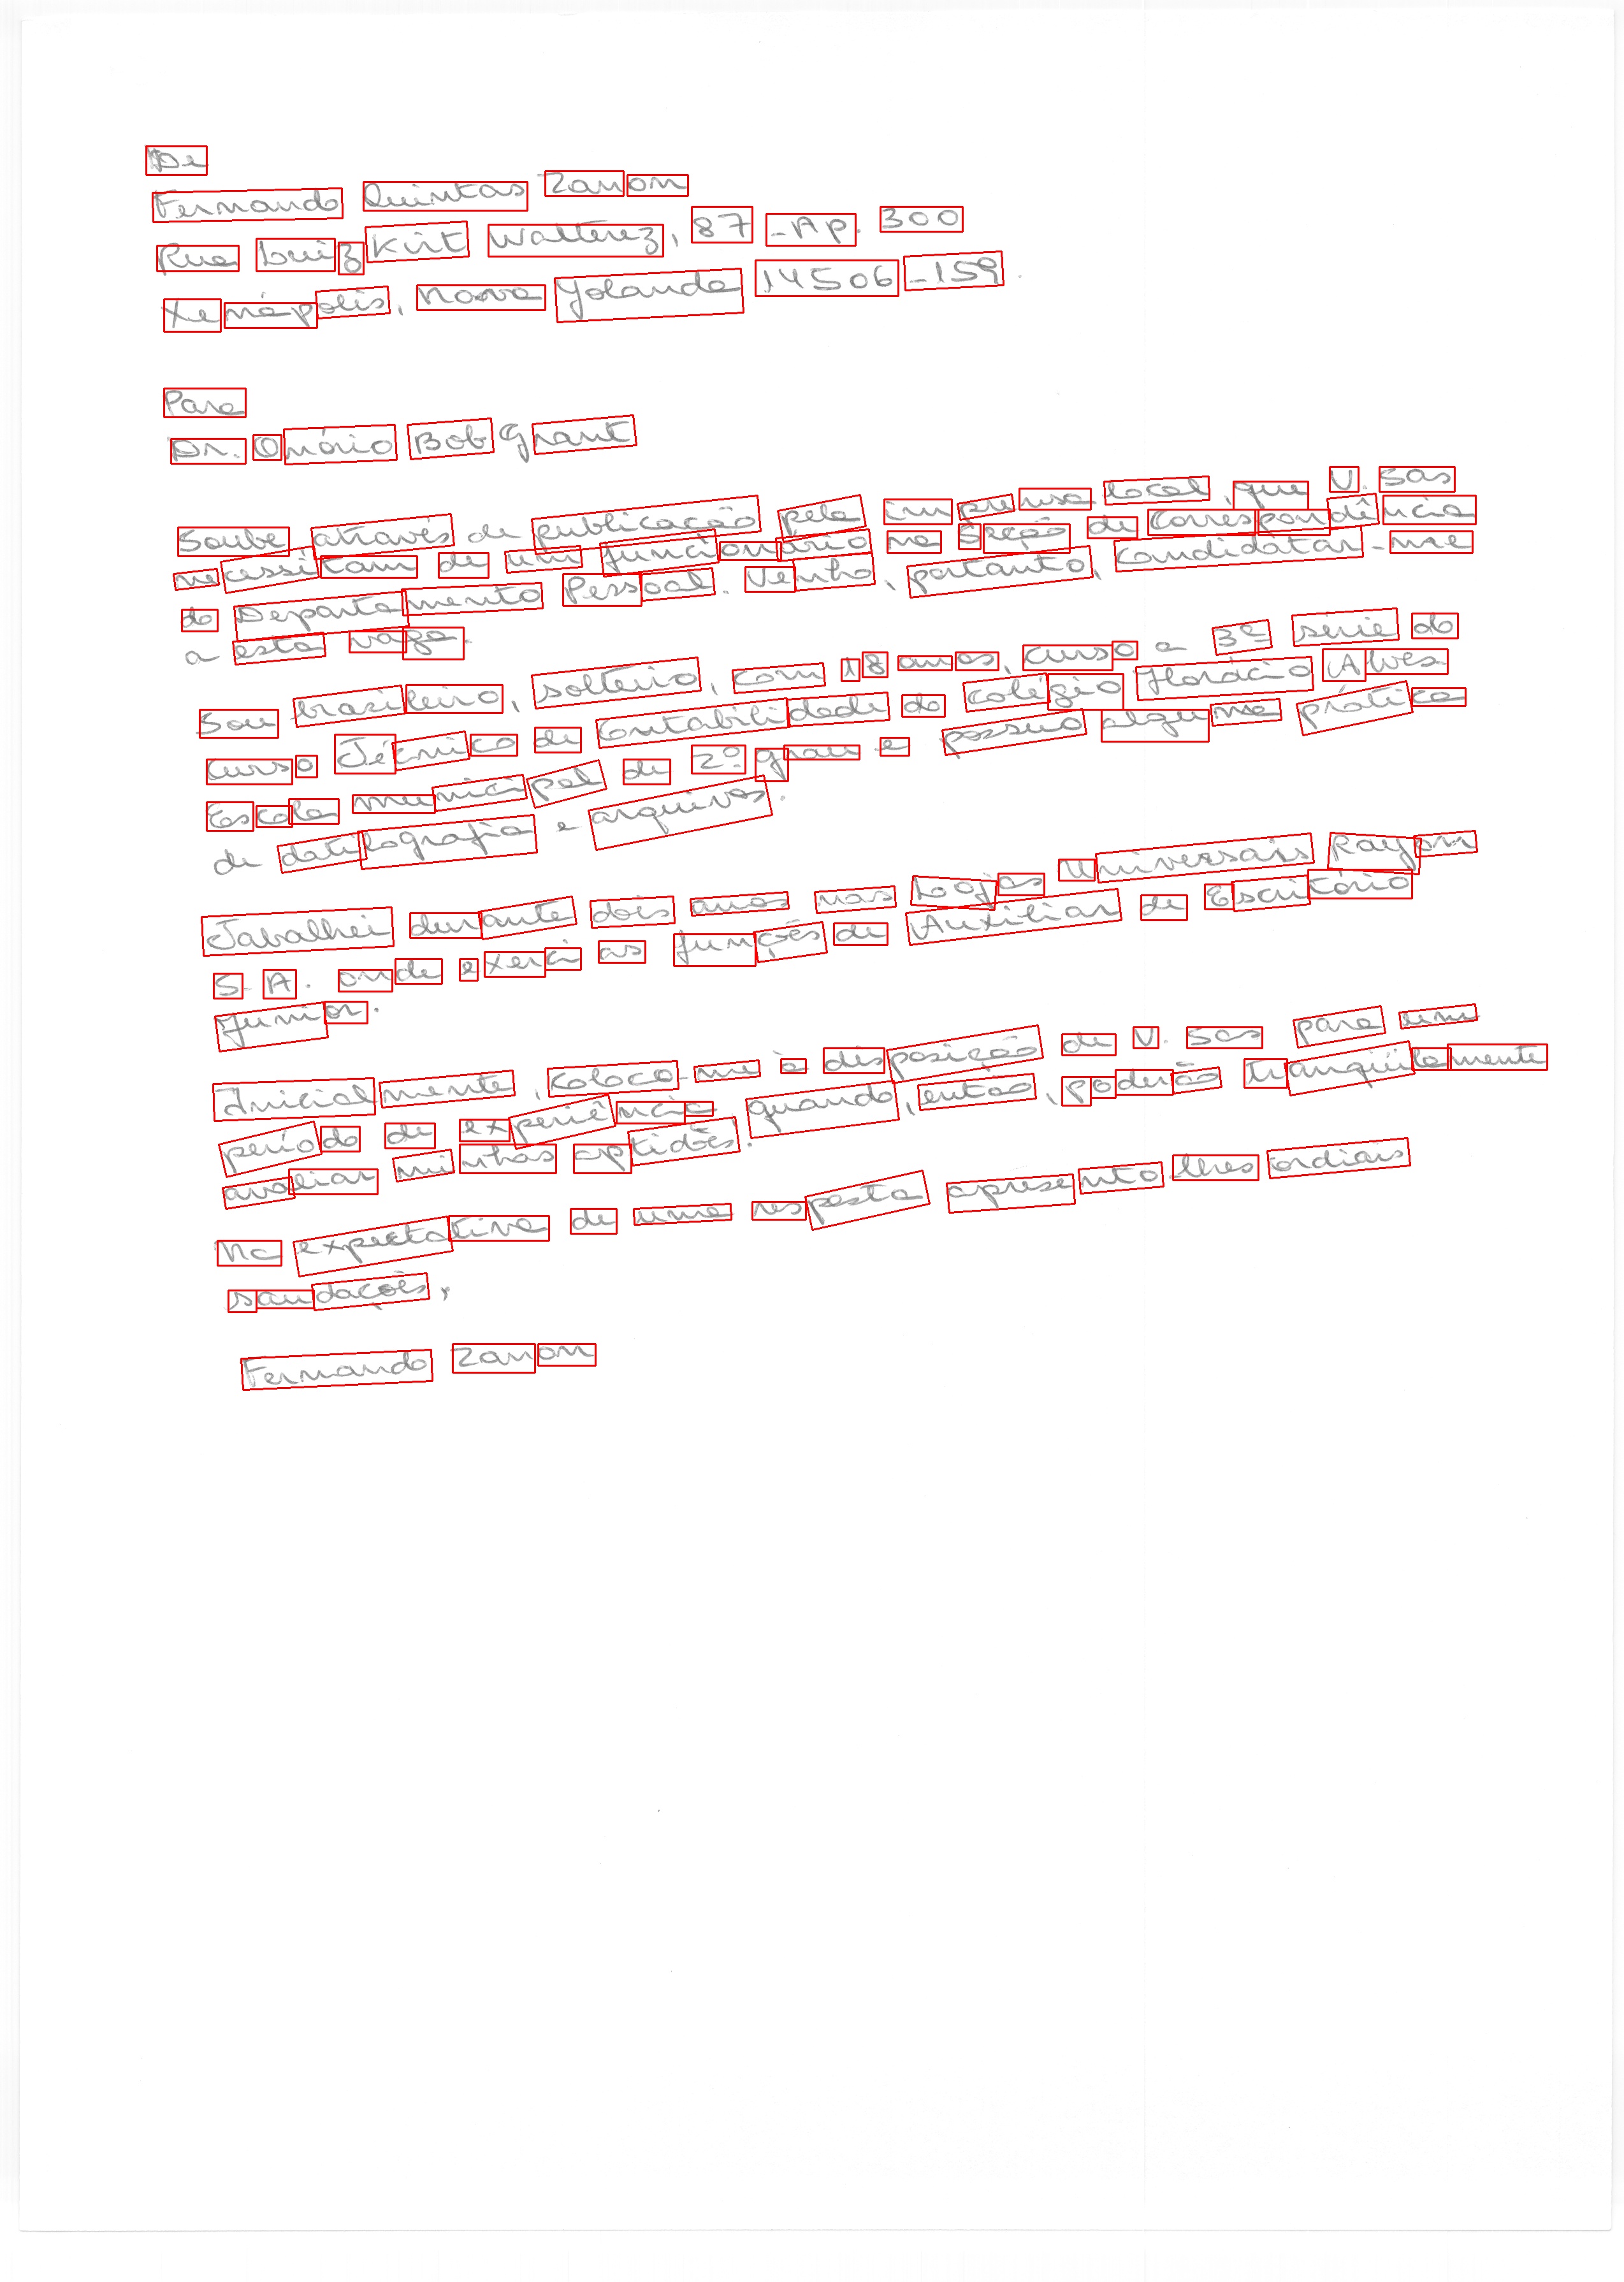 De
Fernando Quintas Zanon
Rua Luiz Kirt Walterez, 87 - Ap. 300
Xenápolis, Nova Yolanda 14506-159.
Para
Dr. Onório Bob Grant
Soube através de publicação pela imprensa local, que V. Sas
necessitam de um funcionário na Seção de Correspondência
do Departamento Pessoal. Venho, portanto, candidatar-me
a esta vaga.
Sou brasileiro, solteiro, com 18 anos, curso a 3ª série do
curso Técnico de Contabilidade do colégio Horácio Alves
Escola municipal de 2º grau e possuo alguma prática
de datilografia e arquivos.
Tabalhei durante dois anos nas Lojas Universais Rayon
S. A. onde exerci as funções de Auxiliar de Escritório
Junior.
Inicialmente, coloco-me à disposição de V. Sas para um
período de experiência, quando, então, poderão tranqüilamente
avaliar minhas aptidões.
Na expectativa de uma resposta apresento-lhes cordiais
saudações,
Fernando Zanon